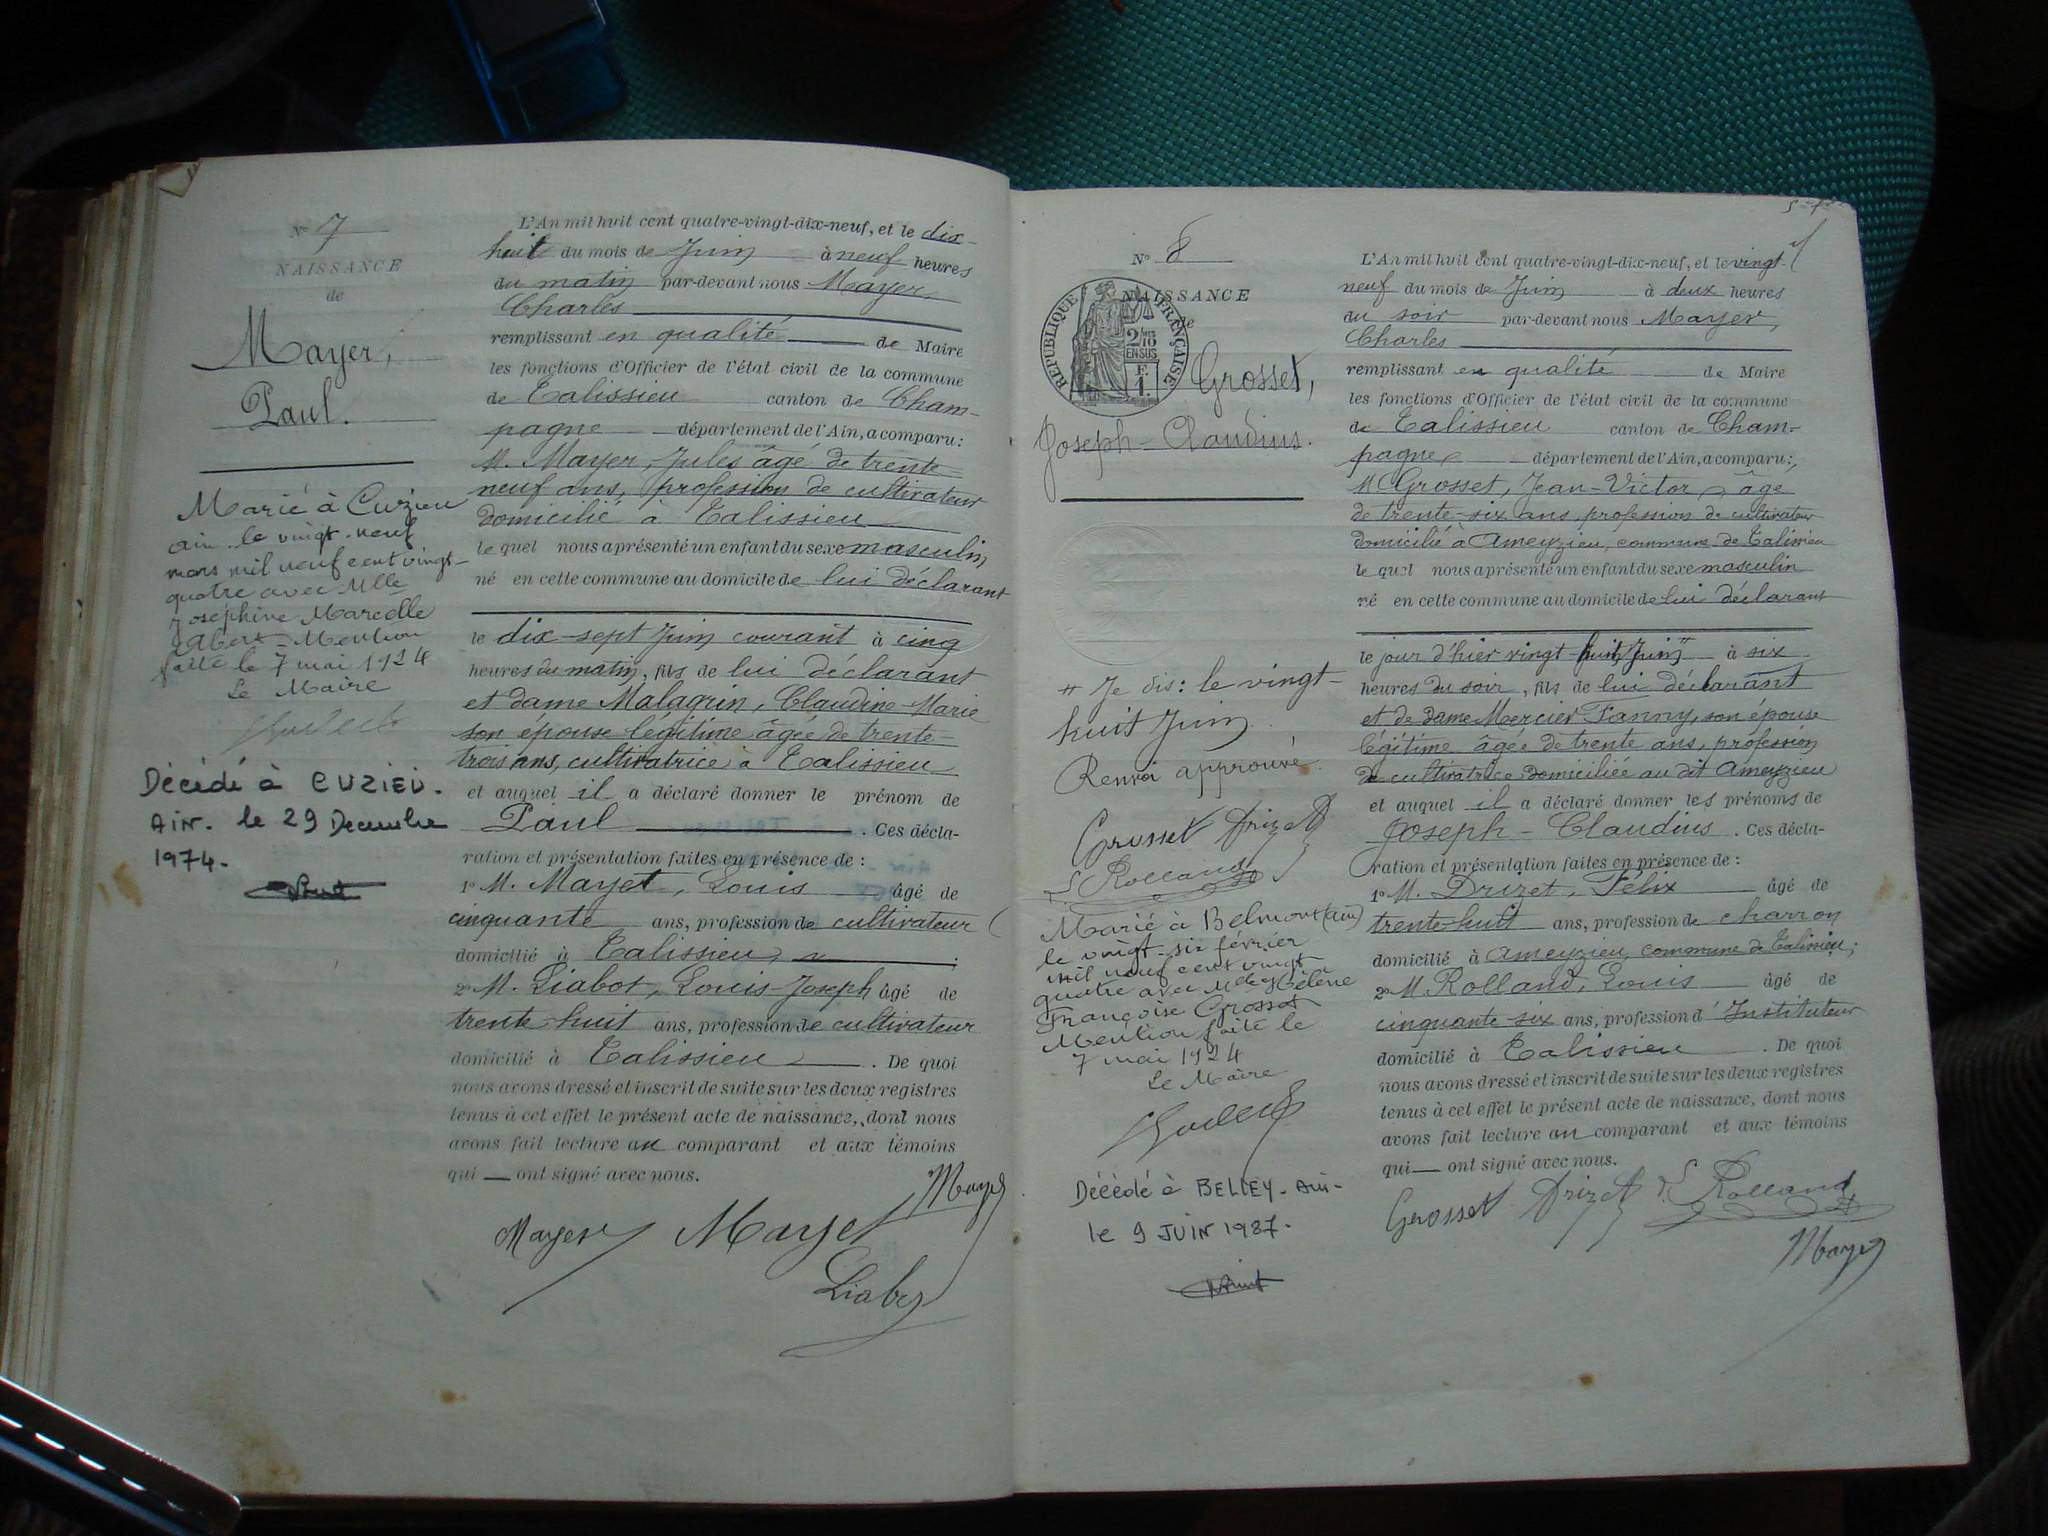 N° 7
NAISSANCE
de
Mayer,
Paul.
Marié à Cuzieu
ain le vingt-neuf
mars mil neuf cent vingt-
quatre avec Mlle
Joséphine Marcelle
Mention
faite le 7 mai 1924
Le Maire
Décédé à CUZIEU.
AIN. le 29 Decembre
1974.
L'An mil huit cent quatre-vingt-dix-neuf, et le dix-
huit du mois de Juin à neuf heures
du matin par-devant nous Mayer,
Charles
remplissant en qualité de Maire
les fonctions d'Officier de l'état civil de la commune
de Talissieu canton de Cham-
pagne département de l'Ain, a comparu:
M. Mayer, Jules âgé de trente-
neuf ans, profession de cultivateur
domicilié à Talissieu
le quel nous a présenté un enfant du sexe masculin,
né en cette commune au domicile de lui déclarant
le dix-sept Juin courant à cinq
heures du matin, fils de lui déclarant
et dame Malagrin, Claudine-Marie
son épouse légitime âgée de trente-
trois ans, cultivatrice à Talissieu
et auquel il a déclaré donner le prénom de
Paul . Ces décla-
ration et présentation faites en présence de :
1° M. Mayet, Louis âgé de
cinquante ans, profession de cultivateur
domicilié à Talissieu ;
2° M. Liabot, Louis-Joseph âgé de
trente-huit ans, profession de cultivateur
domicilié à Talissieu . De quoi
nous avons dressé et inscrit de suite sur les deux registres
tenus à cet effet le présent acte de naissance, dont nous
avons fait lecture au comparant et aux témoins
qui — ont signé avec nous.
Mayer
Mayer Mayet
Liabot
N° 8
NAISSANCE
de
RÉPUBLIQUE FRANÇAISE
2/10
EN SUS
Grosset,
Joseph-Claudius.
# Je dis: le vingt-
huit Juin.
Renvoi approuvé.
Grosset Drizet
L Rolland
Marié à Belmont (ain)
le vingt-six février
mil neuf cent vingt
quatre avec Mlle Hélène
Françoise Grosset
Mention faite le
7 mai 1924
Le Maire
Décédé à BELLEY. Ain-
le 9 JUIN 1987.
L'An mil huit cent quatre-vingt-dix-neuf, et le vingt-
neuf du mois de Juin à deux heures
du soir par-devant nous Mayer,
Charles
remplissant en qualité de Maire
les fonctions d'Officier de l'état civil de la commune
de Talissieu canton de Cham-
pagne département de l'Ain, a comparu:
M Grosset, Jean-Victor, âgé
de trente-six ans, profession de cultivateur
domicilié à Ameyzieu, commune de Talissieu
le quel nous a présenté un enfant du sexe masculin
né en cette commune au domicile de lui déclarant
le jour d'hier vingt-huit Juin # à six
heures du soir, fils de lui déclarant
et de dame Mercier Fanny, son épouse
légitime âgée de trente ans, profession
de cultivatrice domiciliée au dit Ameyzieu
et auquel il a déclaré donner les prénoms de
Joseph-Claudius . Ces décla-
ration et présentation faites en présence de :
1° M. Drizet, Félix âgé de
trente-huit ans, profession de charron
domicilié à Ameyzieu, commune de Talissieu;
2° M. Rolland, Louis âgé de
cinquante-six ans, profession d'Instituteur
domicilié à Talissieu . De quoi
nous avons dressé et inscrit de suite sur les deux registres
tenus à cet effet le présent acte de naissance, dont nous
avons fait lecture au comparant et aux témoins
qui — ont signé avec nous.
Grosset Drizet L Rolland
Mayer